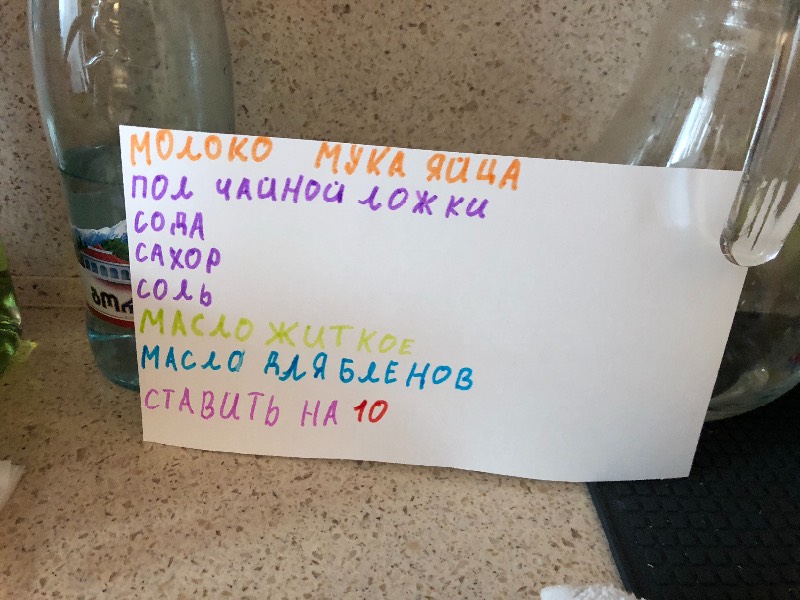 МОЛОКО МУКА ЯЙЦА
ПОЛ ЧАЙНОЙ ЛОЖКИ
СОДА
САХОР
СОЛЬ
МАСЛО ЖИТКОЕ
МАСЛО ДЛЯ БЛЕНОВ
СТАВИТЬ НА 10